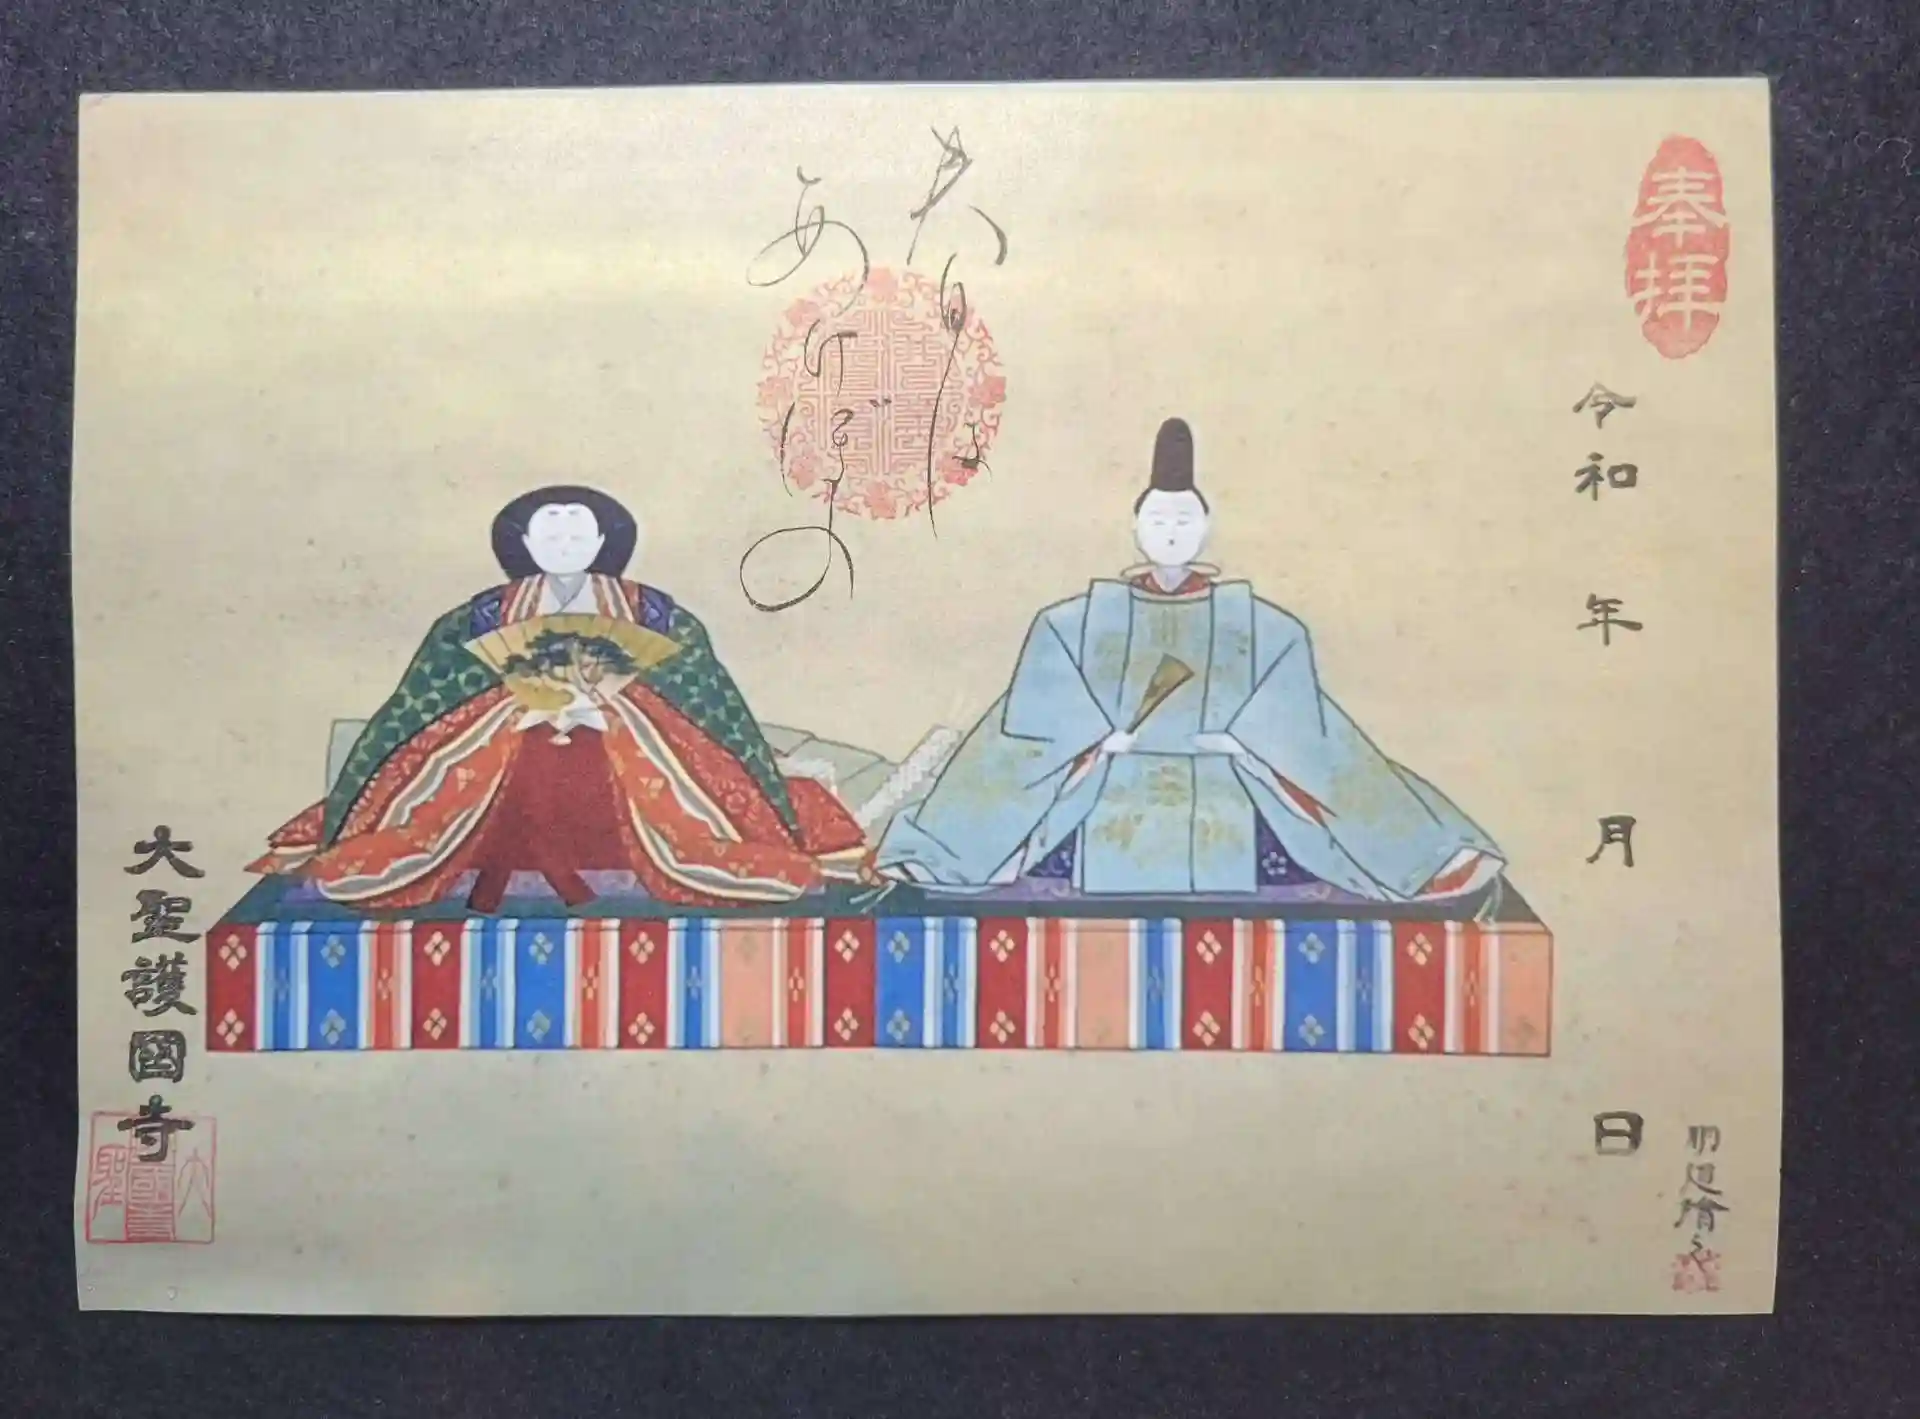 奉拝
令和 年 月 日
春は
あけぼの
大聖護國寺